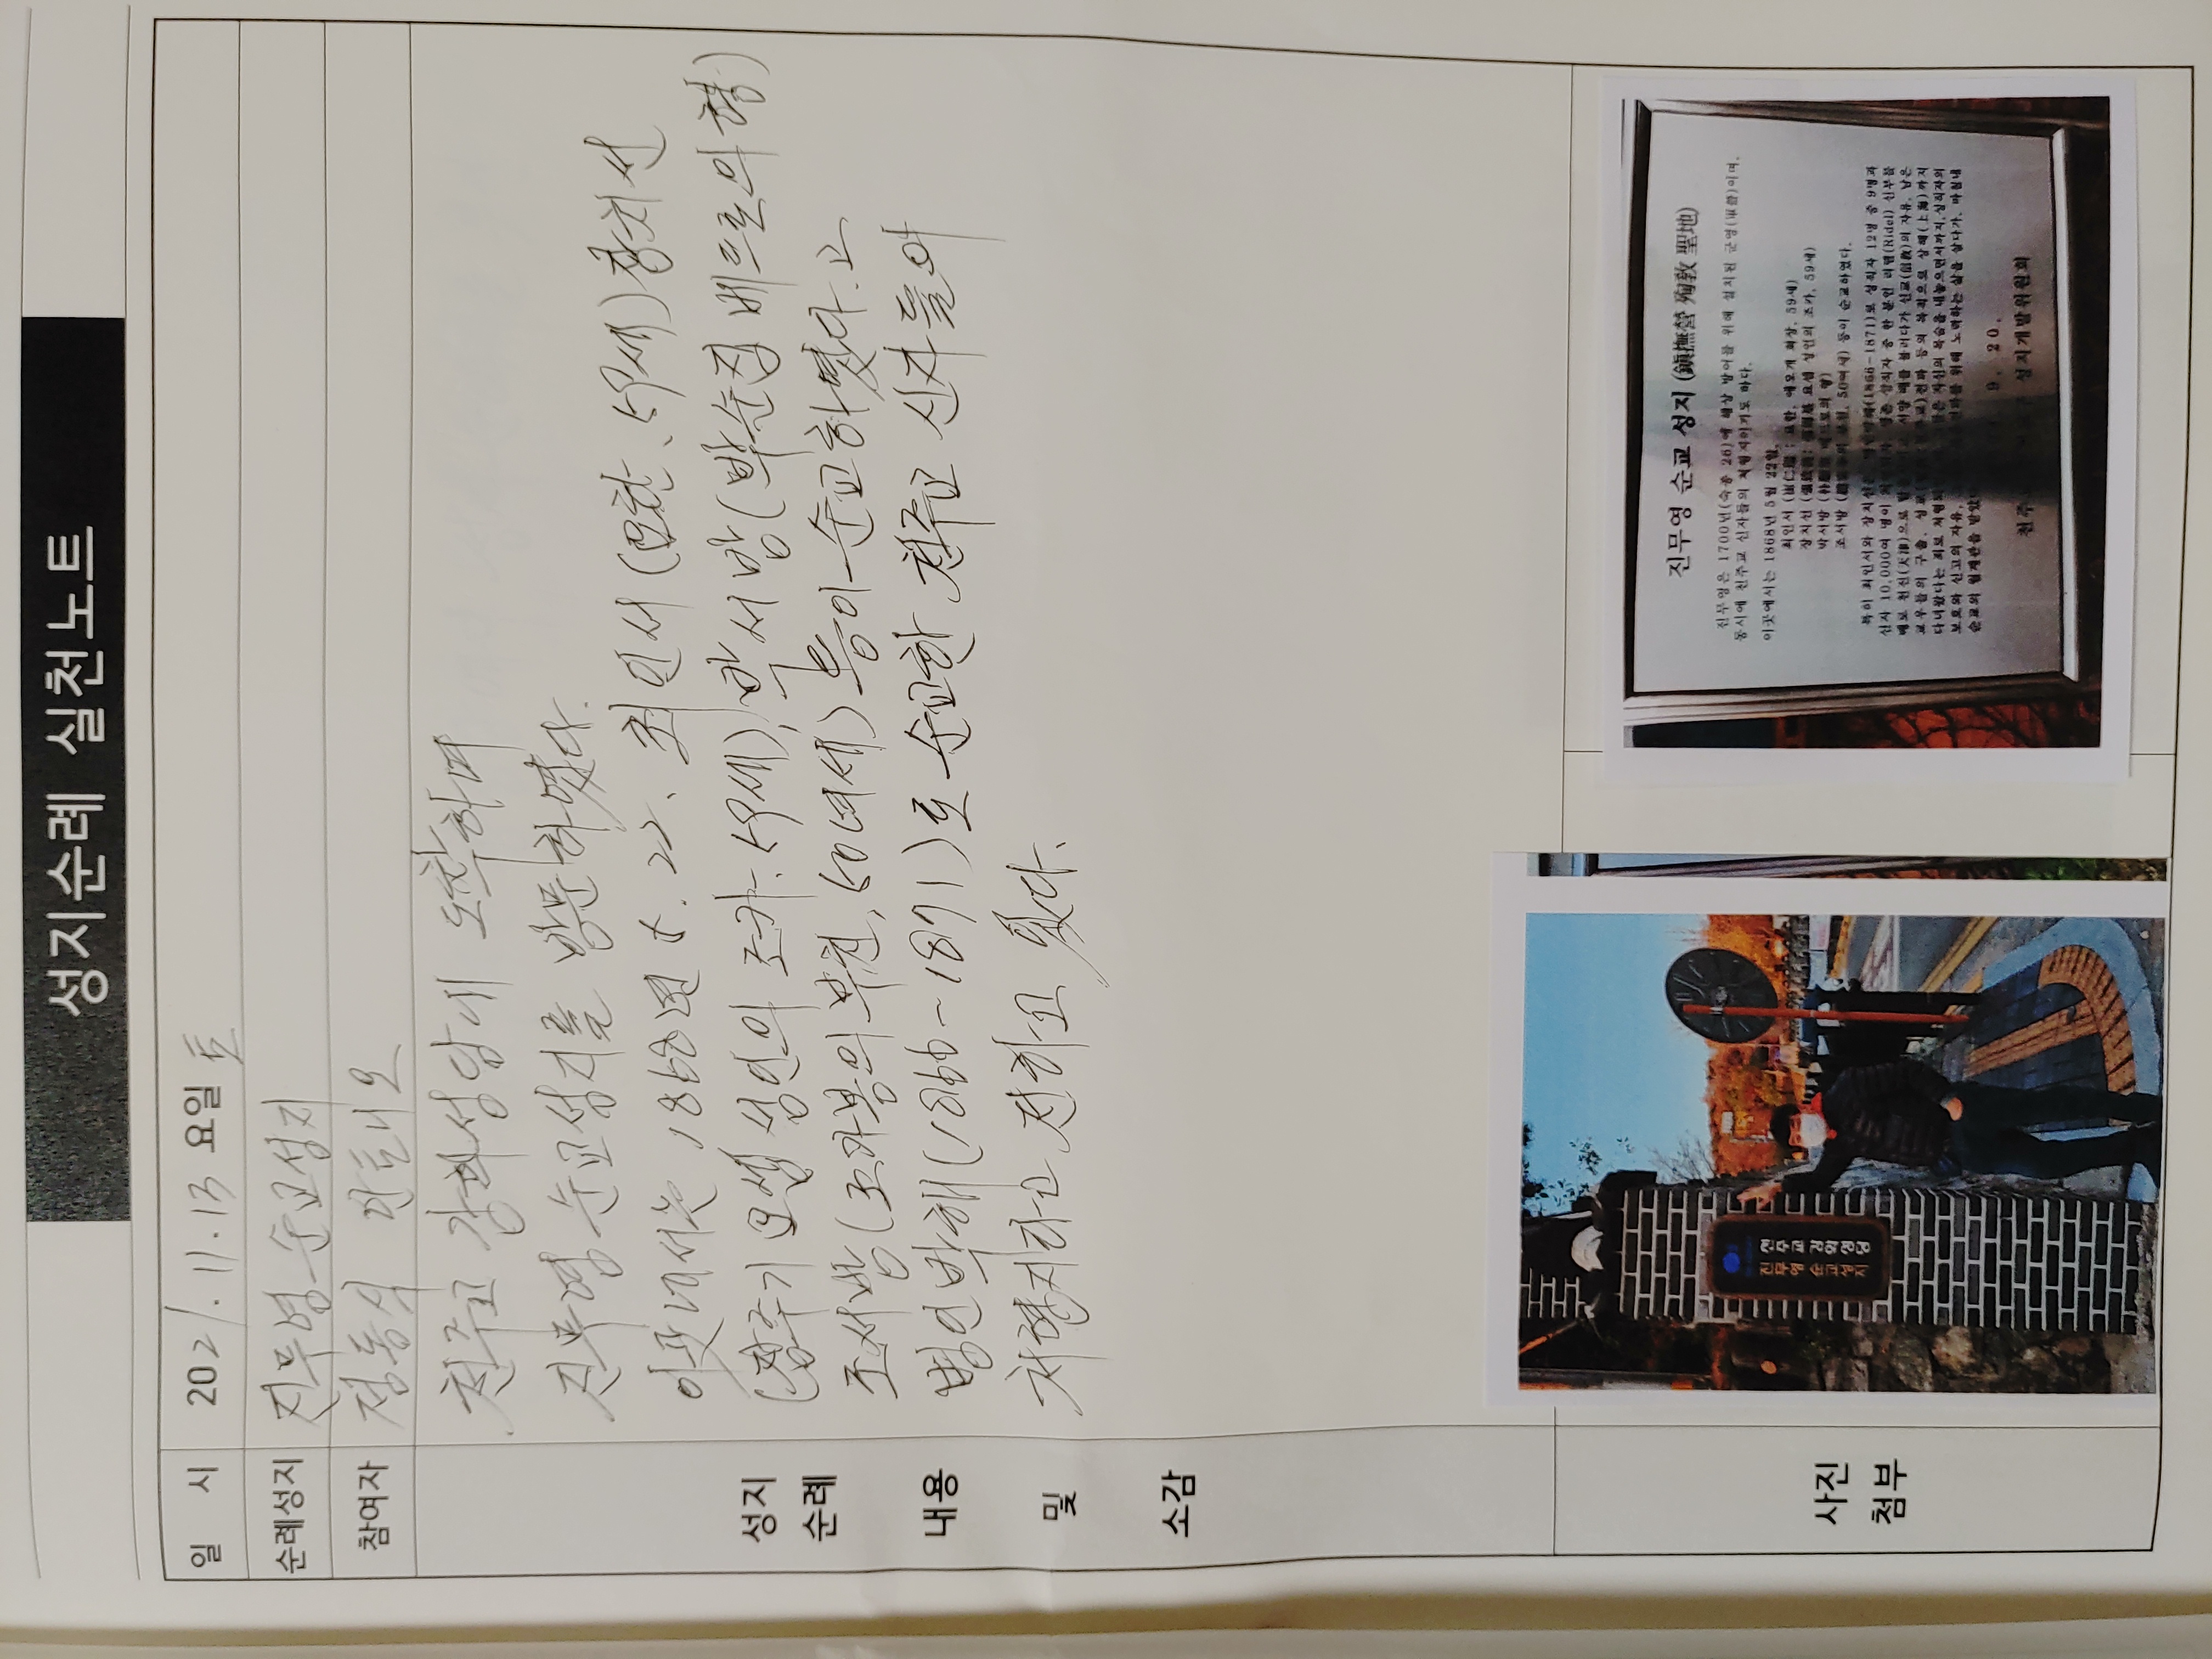 성지순례 실천노트
일 시 2021. 11. 13 요일 토
순례성지 진무영 순교성지
참여자 정동식
천주교 강화성당에 도착하여
진무영 순교성지를 방문하였다.
이곳에서는 1868년 5. 22. 최인서 (요한, 59세) 장치선
(장주기 요셉 성인의 조카. 59세), 박서방 (박순집 베드로의 형)
조서방 (조가봉의 부친, 50여세) 등이 순교하였다.고
병인박해 (1866~1871)로 순교한 천주교 신자들의
처형지라고 전하고 있다.
성지
순례
내용
및
소감
사진
첨부
천주교 강화성당
진무영 순교성지
진무영 순교 성지 (鎭撫營 殉敎 聖地)
진무영은 1700년(숙종 26)에 해상 방어를 위해 설치된 군영(軍營)이며,
동시에 천주교 신자들의 처형지이기도 하다.
이곳에서는 1868년 5월 22일,
최인서 (崔仁瑞 : 요한, 애오개 회장, 59세)
장치선 (張致善 : 張周基 요셉 성인의 조카, 59세)
박서방 (朴書房 베드로의 형)
조서방 (50여세) 등이 순교하였다.
9. 20.
성지개발위원회